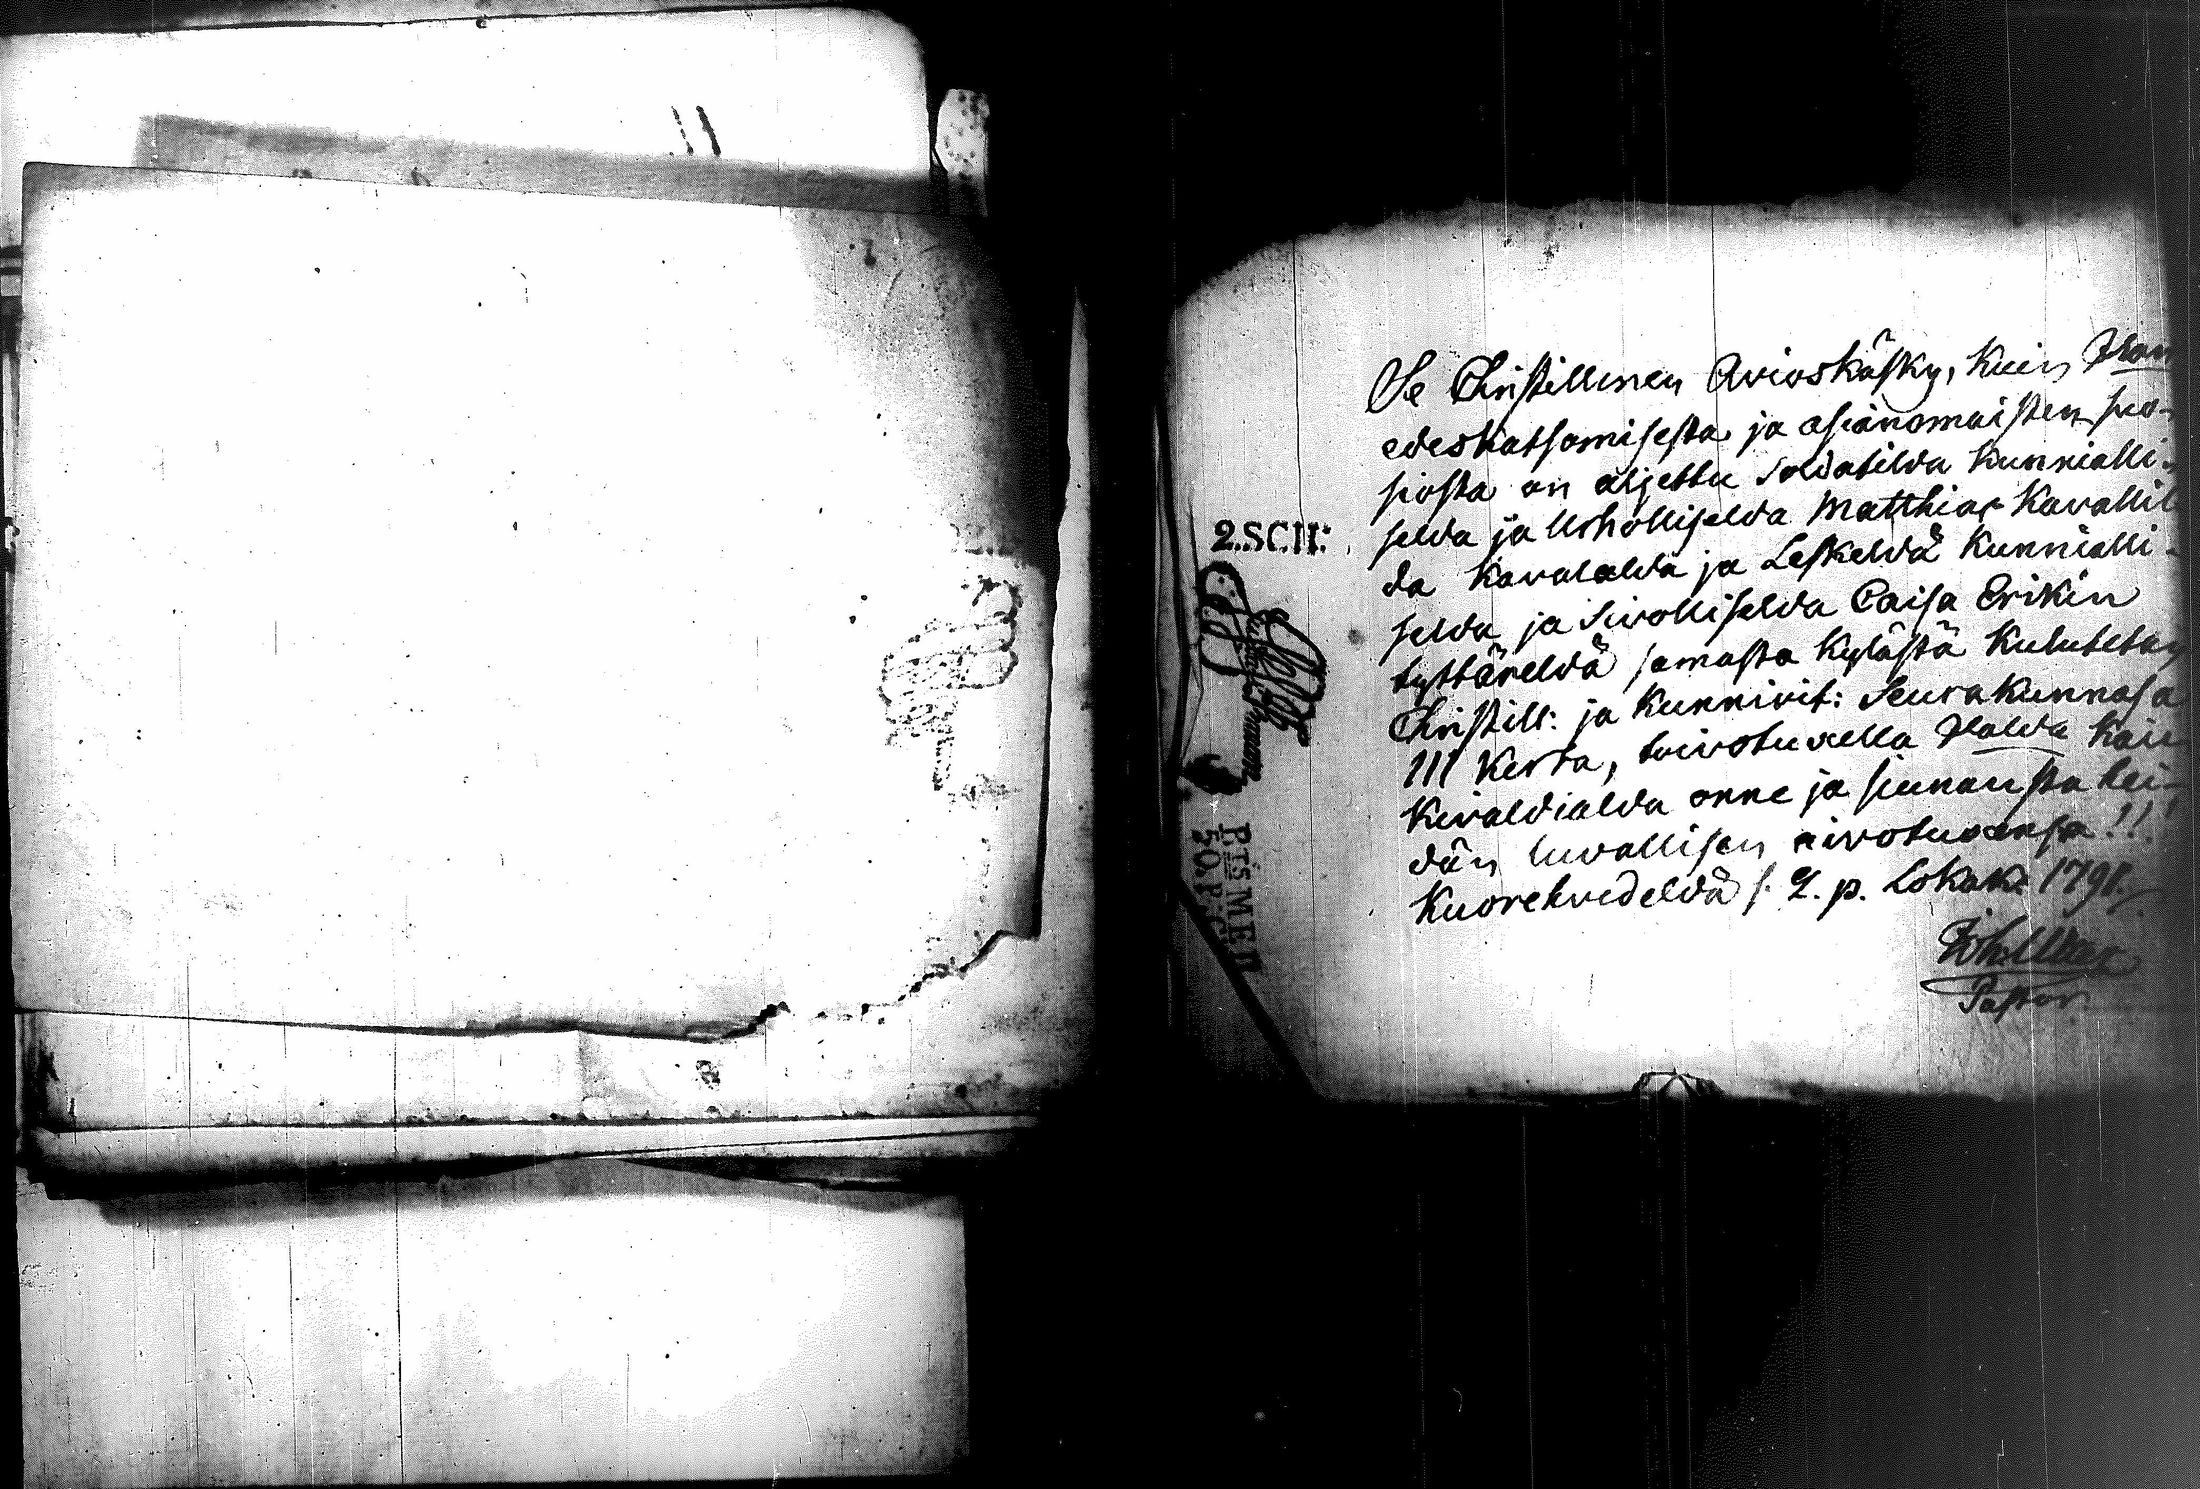 Se Christillinen Avioskäsky, kuin
edeskatsomisesta ja asianomaisten suo-
siosta on aljettu Soldatilda kunnialli-
selda ja Urholliselda Matthias Kavallil
da Kavalalda ja Leskeldä kunnialli-
selda ja Sivolliselda Caisa Erikin
tyttäreldä samasta kylästä kulutetan
Christill: ja kunnivit: Seurakunnasa
III kerta, toivotuxella
Kivaldialda onne ja siunausta hei-
dän luvallisen aivotuxensa!!!
Kuorehvedeldä s. 2. p. Lokak. 1791.
Pastor
2.SCH:
PTSMEN
50.P.C.